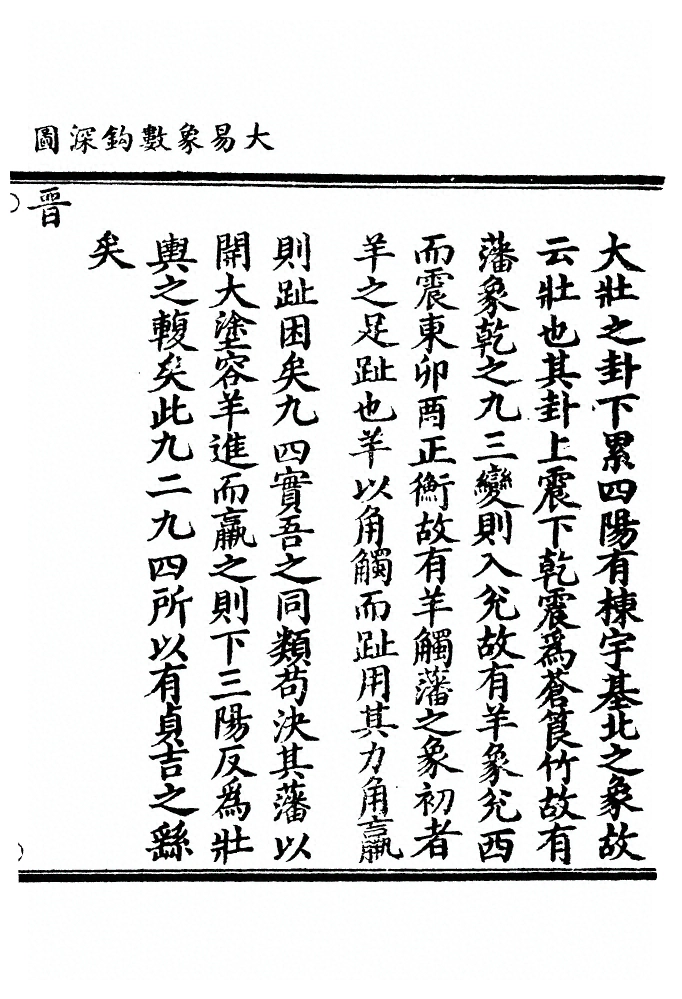 大易象數鈎深圖
大壯之卦下累四陽有棟宇基北之象故
云壯也其卦上震下乾震爲蒼筤竹故有
藩象乾之九三變則入兊故有羊象兊西
而震東卯酉正衡故有羊觸藩之象初者
羊之足趾也羊以角觸而趾用其力角羸
則趾困矣九四實吾之同類苟決其藩以
開大塗容羊進而羸之則下三陽反爲壯
輿之輹矣此九二九四所以有貞吉之繇
矣
晉